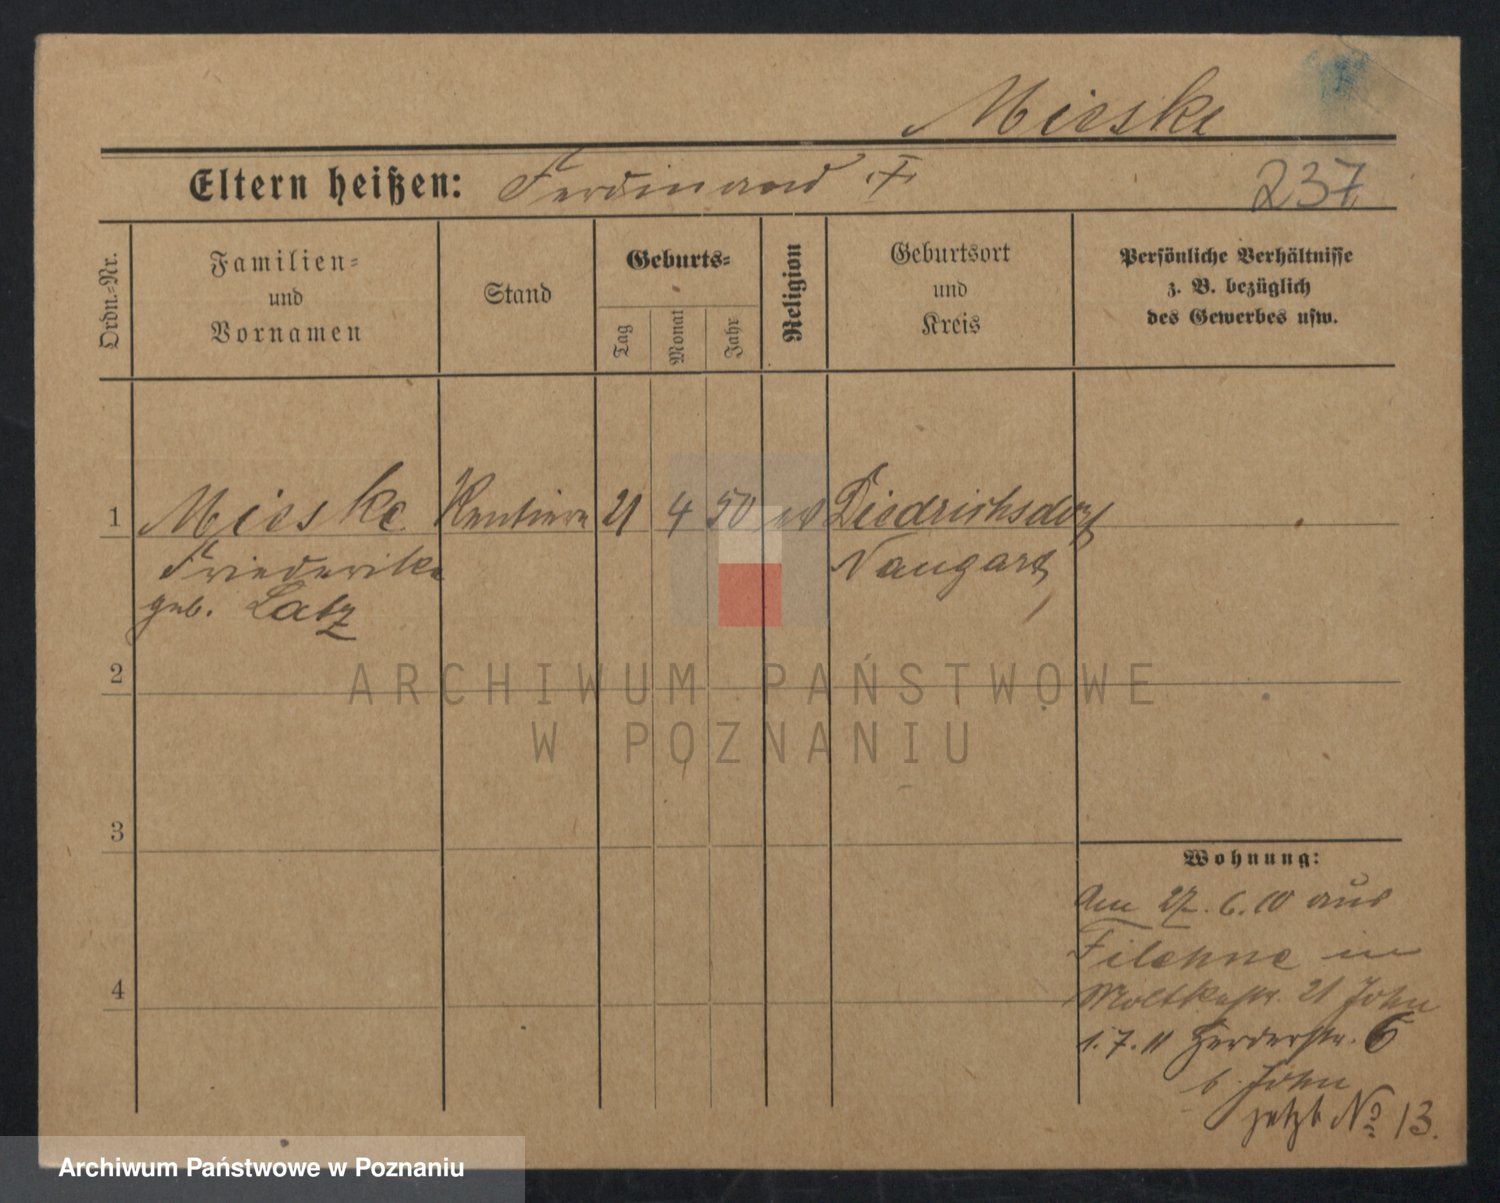 Mieske
Eltern heißen: Ferdinand †
237
Ordn.-Nr.
Familien-
und
Vornamen
Stand
Geburts-
Tag
Monat
Jahr
Religion
Geburtsort
und
Kreis
Persönliche Verhältnisse
z. B. bezüglich
des Gewerbes usw.
1 Mieske Rentiere 21 4 50 ev Diedrichsdorf
Friederike Naugard
geb. Latz
2
ARCHIWUM PAŃSTWOWE
W POZNANIU
3
Wohnung:
Am 27.6.10 aus
Filehne in
4
Moltkestr. 21 John
1.7.11 Herderstr. 6
b. John
jetzt No 13.
Archiwum Państwowe w Poznaniu